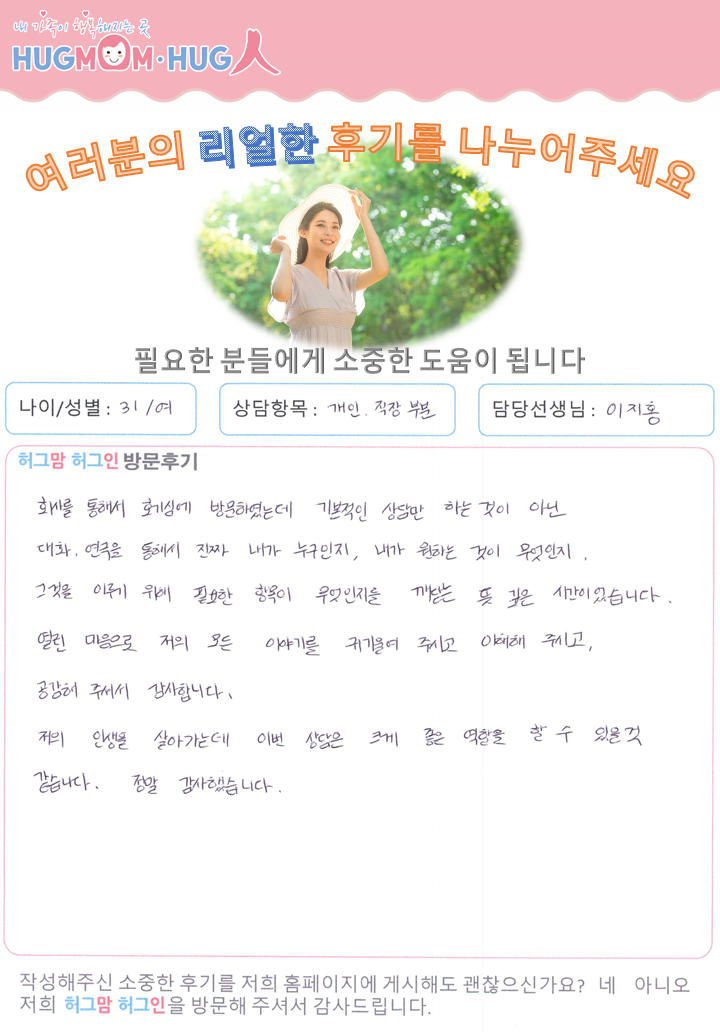 내 가족이 행복해지는 곳
HUGMOM·HUG人
여러분의 리얼한 후기를 나누어주세요
필요한 분들에게 소중한 도움이 됩니다
나이/성별 : 31 /여
상담항목 : 개인. 직장 부분
담당선생님 : 이지홍
허그맘 허그인 방문후기
회사를 통해서 호기심에 방문하였는데 기본적인 상담만 하는 것이 아닌
대화. 연극을 통해서 진짜 내가 누구인지, 내가 원하는 것이 무엇인지.
그것을 이루기 위해 필요한 항목이 무엇인지를 깨닫는 뜻 깊은 시간이었습니다.
열린 마음으로 저의 모든 이야기를 귀기울여 주시고 이해해 주시고,
공감해 주셔서 감사합니다.
저의 인생을 살아가는데 이번 상담은 크게 좋은 역할을 할 수 있을 것
같습니다. 정말 감사했습니다.
작성해주신 소중한 후기를 저희 홈페이지에 게시해도 괜찮으신가요? 네 아니오
저희 허그맘 허그인을 방문해 주셔서 감사드립니다.